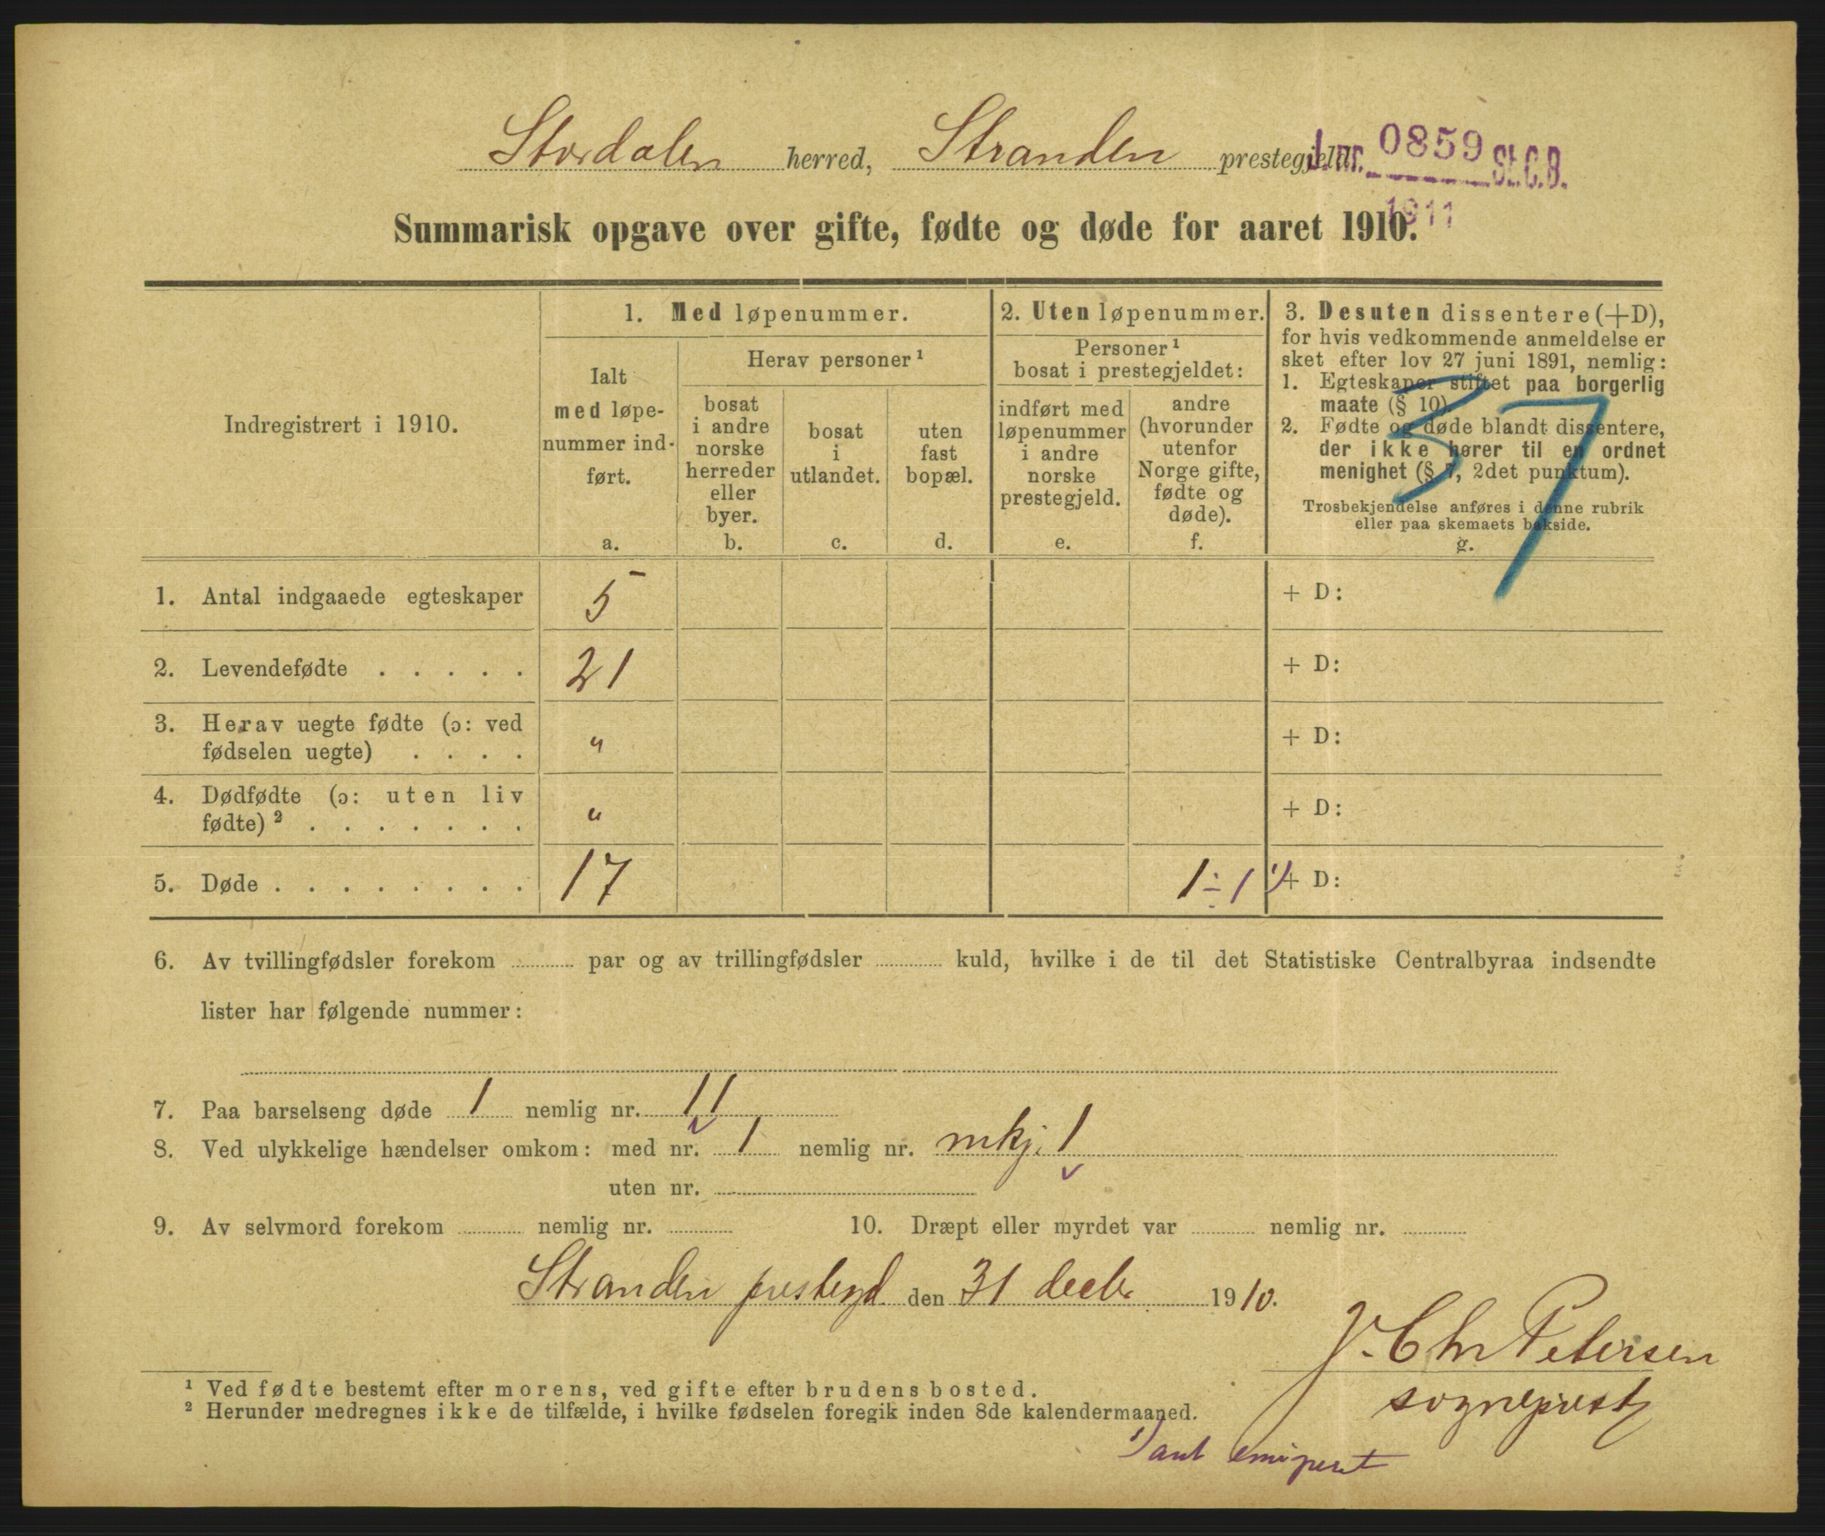 Stordalen herred, Stranden prestegjeld.
J. nr. 0859 St. C. B.
1911
Summarisk opgave over gifte, fødte og døde for aaret 1910.
Indregistrert i 1910.
1. Med løpenummer.
Ialt
med løpe-
nummer ind-
ført.
a.
Herav personer ¹
bosat
i andre
norske
herreder
eller
byer.
b.
bosat
i
utlandet.
c.
uten
fast
bopæl.
d.
2. Uten løpenummer.
Personer ¹
bosat i prestegjeldet:
indført med
løpenummer
i andre
norske
prestegjeld.
e.
andre
(hvorunder
utenfor
Norge gifte,
fødte og
døde).
f.
3. Desuten dissentere (+D),
for hvis vedkommende anmeldelse er
sket efter lov 27 juni 1891, nemlig:
1. Egteskaper stiftet paa borgerlig
maate (§ 10).
2. Fødte og døde blandt dissentere,
der ikke hører til en ordnet
menighet (§ 7, 2det punktum).
Trosbekjendelse anføres i denne rubrik
eller paa skemaets bakside.
g.
37
1. Antal indgaaede egteskaper 5 + D:
2. Levendefødte . . . . . 21 + D:
3. Herav uegte fødte (ɔ: ved
fødselen uegte) . . . . " + D:
4. Dødfødte (ɔ: uten liv
fødte) ² . . . . . . . " + D:
5. Døde . . . . . . . . 17 1 ÷ 1 ¹) + D:
6. Av tvillingfødsler forekom par og av trillingfødsler kuld, hvilke i de til det Statistiske Centralbyraa indsendte
lister har følgende nummer:
7. Paa barselseng døde 1 nemlig nr. 11
8. Ved ulykkelige hændelser omkom: med nr. 1 nemlig nr. mkj. 1
uten nr.
9. Av selvmord forekom nemlig nr. 10. Dræpt eller myrdet var nemlig nr.
Stranden prestegd den 31 decbr 1910.
J. Chr Petersen
sogneprest
¹ Ved fødte bestemt efter morens, ved gifte efter brudens bosted.
² Herunder medregnes ikke de tilfælde, i hvilke fødselen foregik inden 8de kalendermaaned.
¹) ant